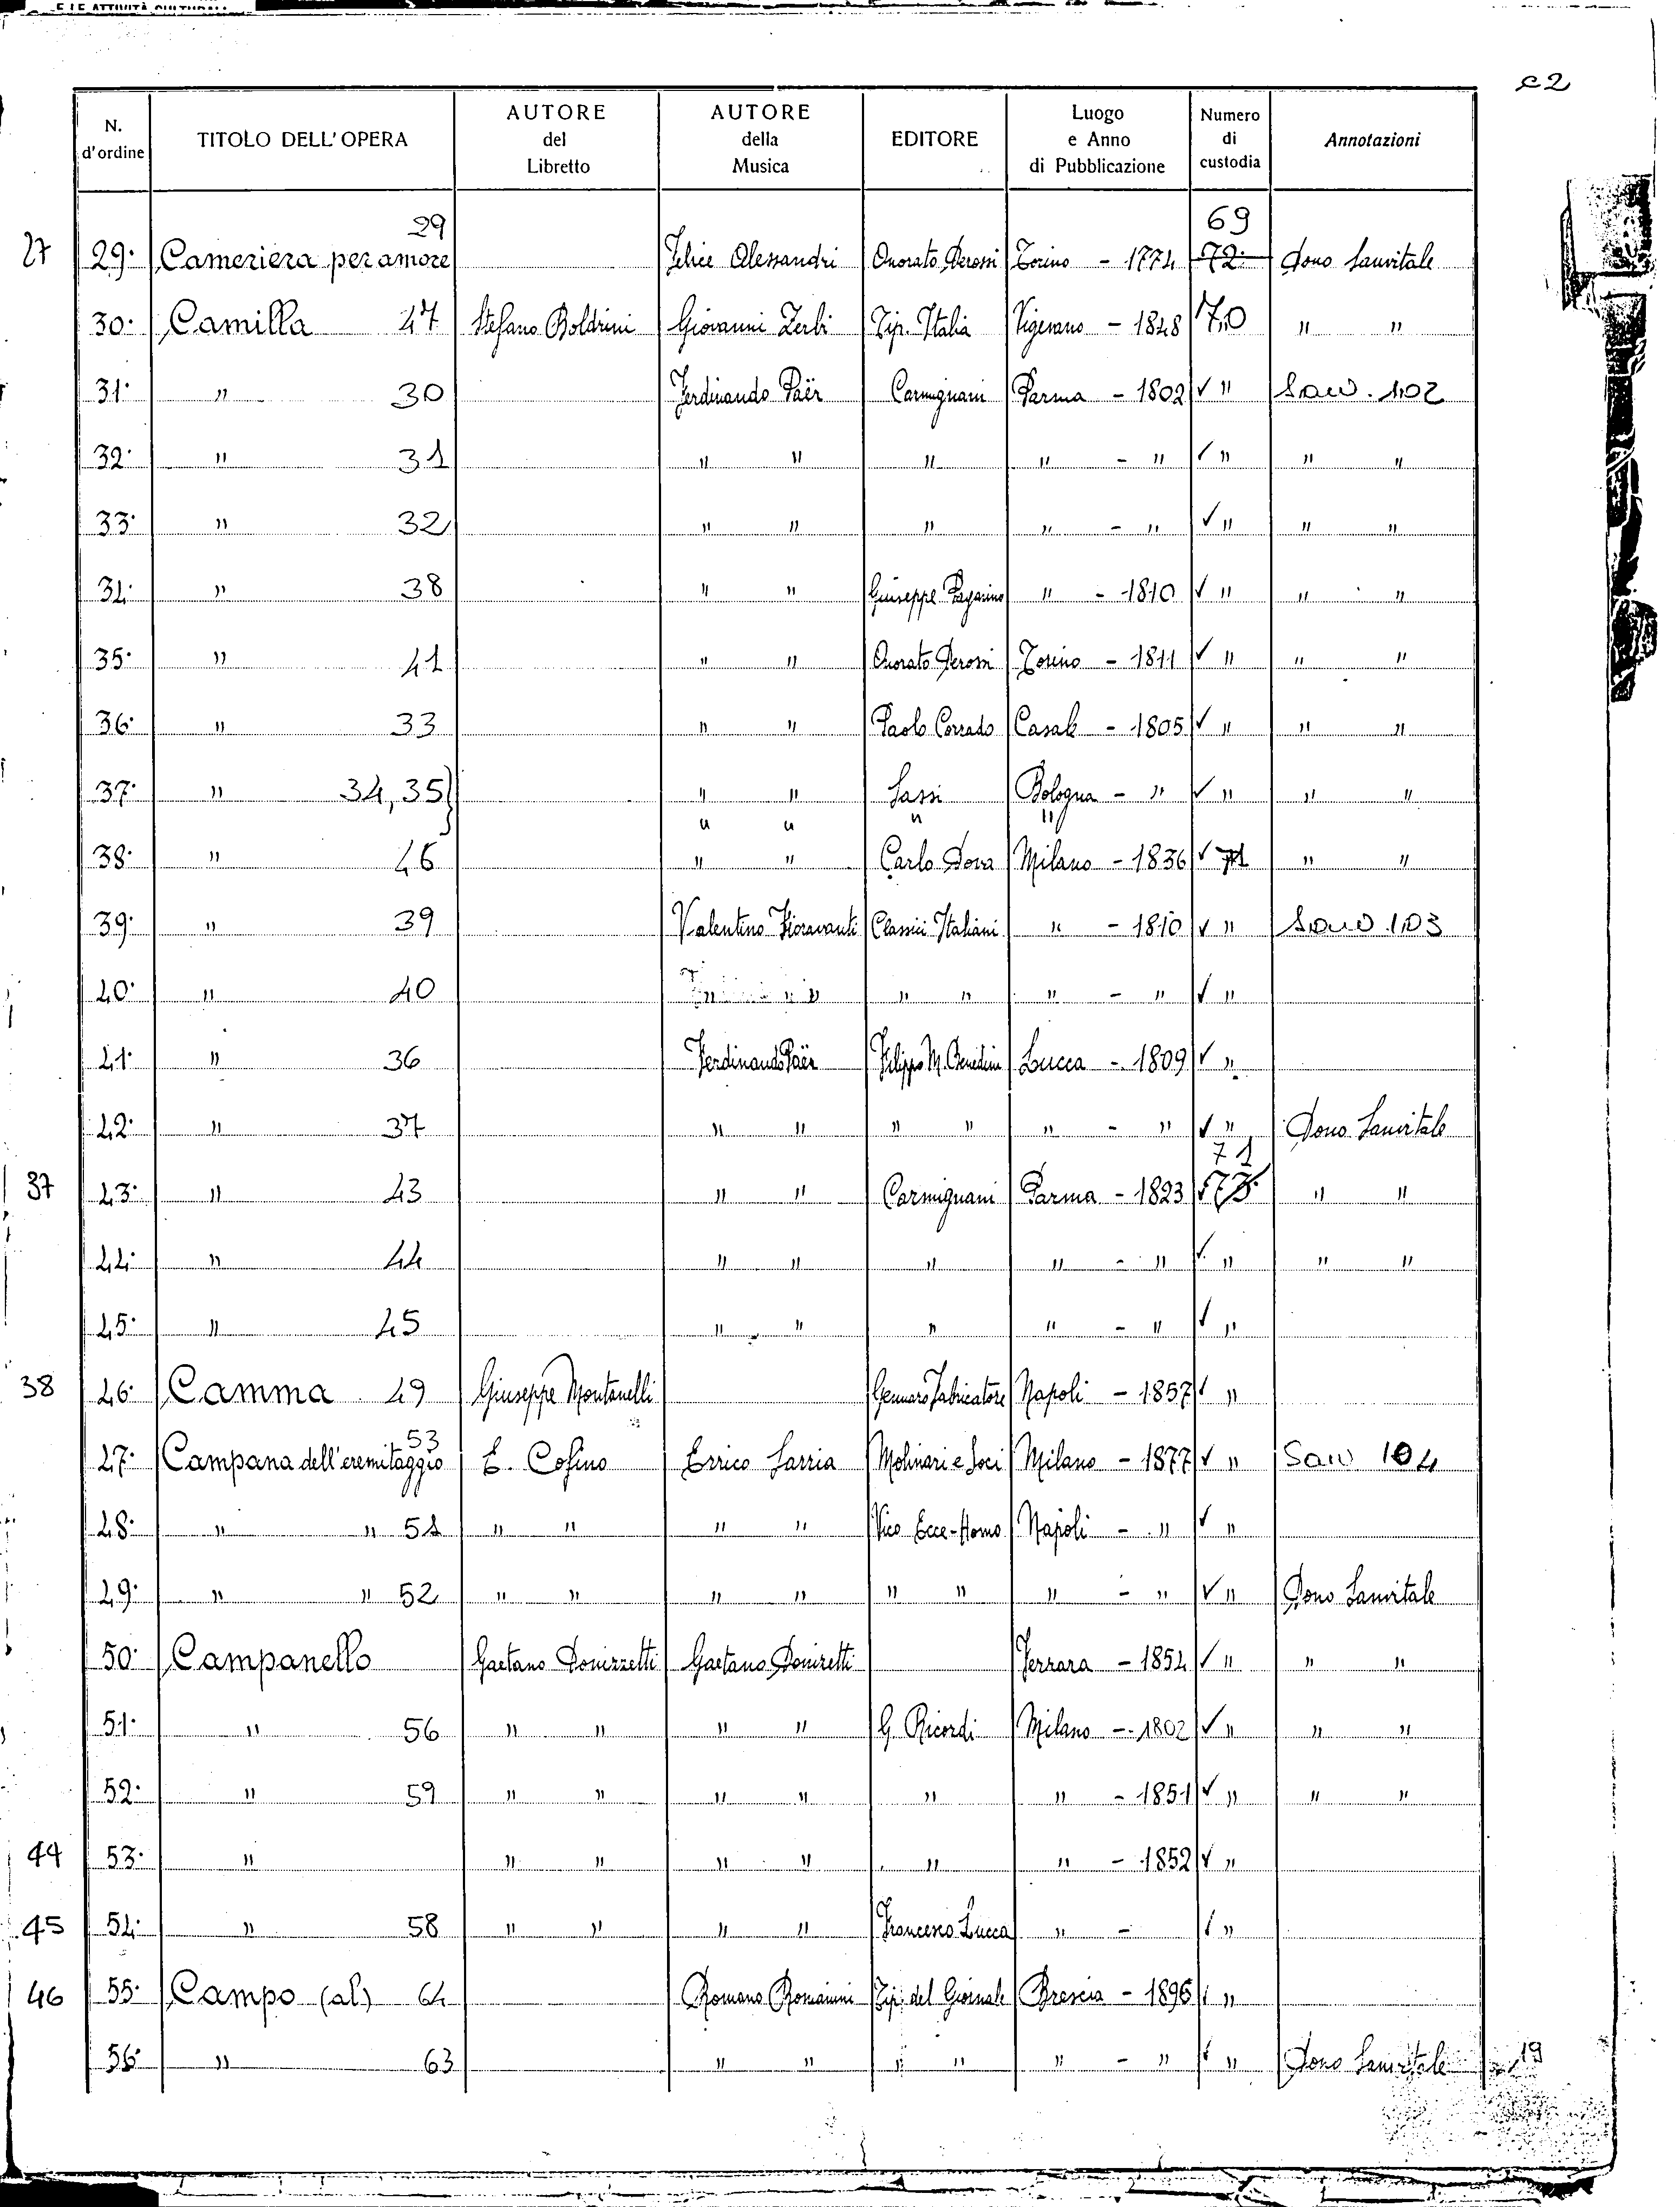 E LE ATTIVITÀ CULTURALI
c2
N. d'ordine TITOLO DELL'OPERA AUTORE del Libretto AUTORE della Musica EDITORE Luogo e Anno di Pubblicazione Numero di custodia Annotazioni
29 69
27 29. Cameriera per amore Felice Alessandri Onorato Derossi Torino - 1774 72. Dono Sanvitale
30. Camilla 47 Stefano Boldrini Giovanni Zerbi Tip. Italia Vigevano - 1848 70 " "
31. " 30 Ferdinando Paër Carmignani Parma - 1802 ✓ " Sanv. 102
32. " 31 " " " " - " ✓ " " "
33. " 32 " " " " - " ✓ " " "
34. " 38 " " Giuseppe Paganino " - 1810 ✓ " " "
35. " 41 " " Onorato Derossi Torino - 1811 ✓ " " "
36. " 33 " " Paolo Corrado Casale - 1805 ✓ " " "
37. " 34, 35 " " Sassi Bologna - " ✓ " " "
" " " "
38. " 46 " " Carlo Dova Milano - 1836 ✓ 71 " "
39. " 39 Valentino Fioravanti Classici Italiani " - 1810 ✓ " Sanv 103
40. " 40 " " " - " ✓ "
41. " 36 Ferdinando Paër Filippo M. Benedini Lucca - 1809 ✓ "
42. " 37 " " " " " - " ✓ " Dono Sanvitale
71
37 43. " 43 " " Carmignani Parma - 1823 ✓ 73. " "
44. " 44 " " " " - " ✓ " " "
45. " 45 " " " " - " ✓ "
38 46. Camma 49 Giuseppe Montanelli Gennaro Fabricatore Napoli - 1857 ✓ "
53
47. Campana dell'eremitaggio E. Cofino Errico Sarria Molinari e Soci Milano - 1877 ✓ " Sanv 104
48. " " 51 " " " " Vico Ecce-Homo Napoli - " ✓ "
49. " " 52 " " " " " " " - " ✓ " Dono Sanvitale
50. Campanello Gaetano Donizzetti Gaetano Donizetti Ferrara - 1854 ✓ " " "
51. " 56 " " " " G. Ricordi Milano - 1802 ✓ " " "
52. " 59 " " " " " " - 1851 ✓ " " "
44 53. " " " " " " " - 1852 ✓ "
45 54. " 58 " " " " Francesco Lucca " - ✓ "
46 55. Campo (al) 64 Romano Romanini Tip. del Giornale Brescia - 1896 ✓ "
56. " 63 " " " " " - " ✓ " Dono Sanvitale 19